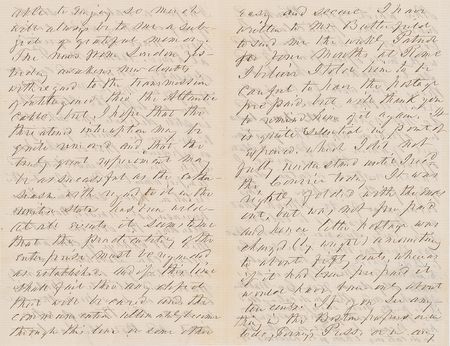 able to enjoy so much
will always be to me a sub-
ject of grateful memory.
The news from London yes-
terday awakens new doubts
with regard to the transmission
of intelligence thro' the Atlantic
Cable, but I hope that the
threatened interruption may be
quite removed and that the
truly great experiment may
be as successful as the
with regard to it in the
United States has been
it seems to me
that the practicability of the
enterprise must be regarded
as established and if this line
shall fail this very attempt
that will be cared and the
communication ultimately become
through this line or some other
easy and secure. I have
written to Mr Butterfield
to send me the weekly Patriot
for four months at Rome
I believe I told him to be
careful to have the postage
pre paid, but will thank you
to remind him of it again. It
is quite essential in point of
expense, which I did not
fully understand until I recd
the Courier today. It was
rightly folded with the
out, but was not pre paid
and hence letter postage was
charged by weight amounting
to about fifty cents, whereas
if it had been pre paid it
would have been only about
ten cents. If you see any
thing in the Boston papers
Press, or in any